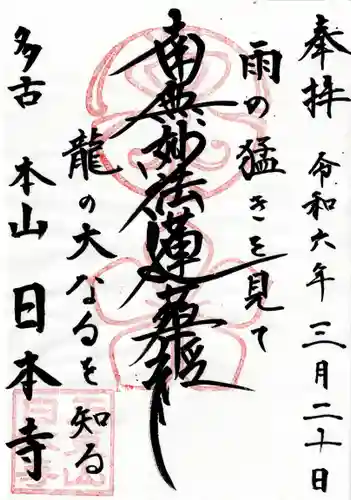 奉拝 令和六年三月二十日
雨の猛きを見て
南無妙法蓮華経
龍の大なるを知る
多古 本山 日本寺